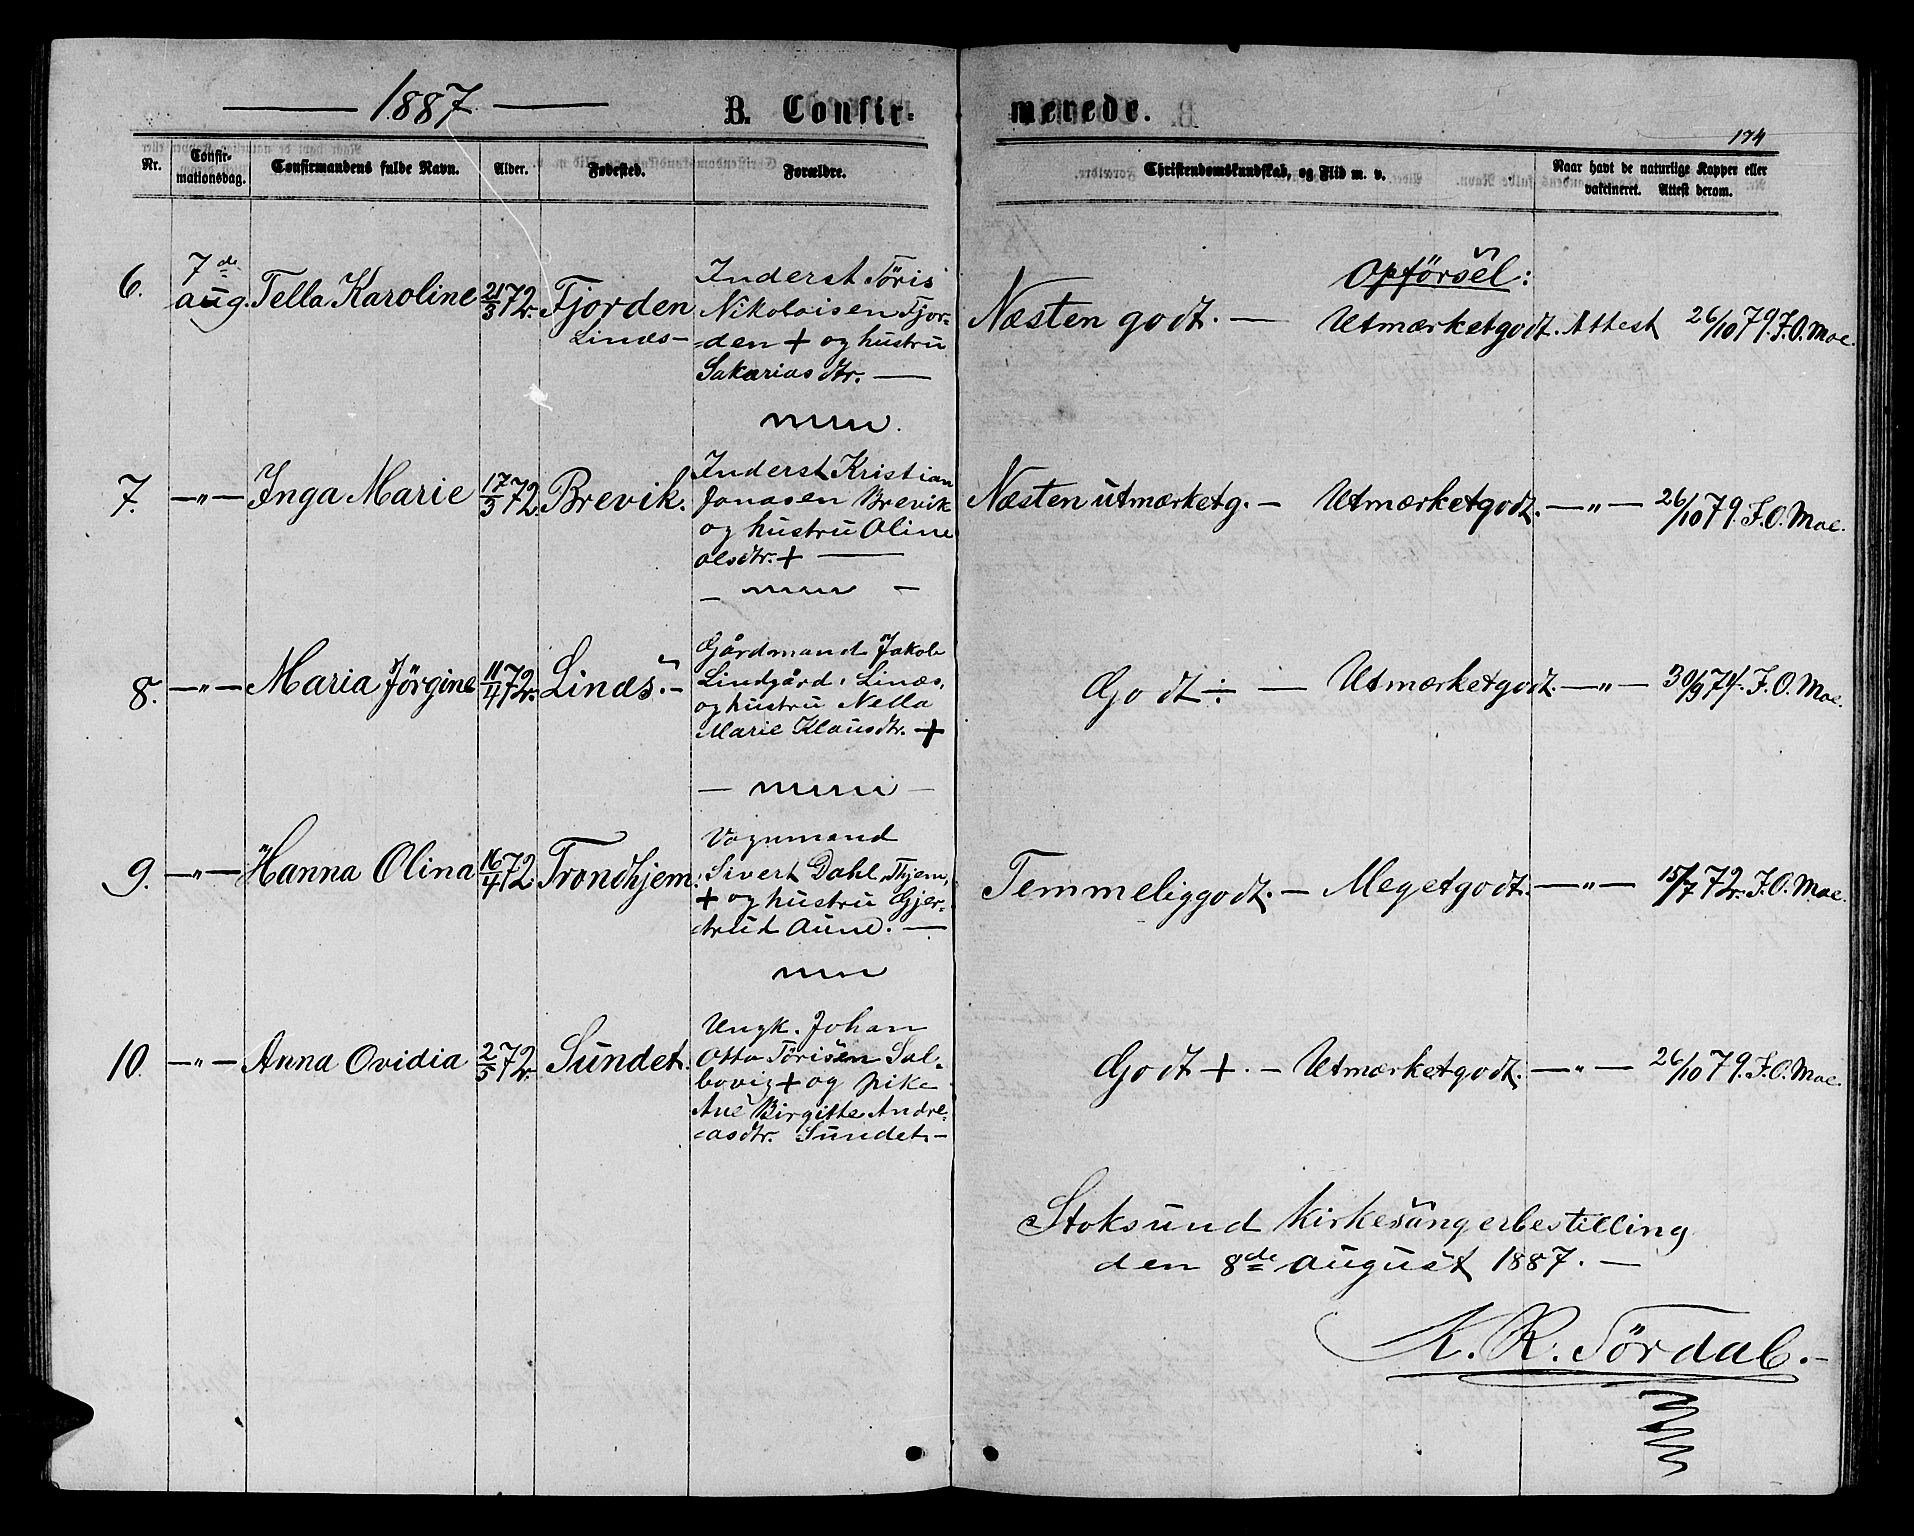 1887
B. Confirmerede.
174
Nr.
Confirmationsdag.
Confirmandens fulde Navn.
Alder.
Fødested.
Forældre.
Christendomskundskab, og Flid m. v.
Naar havt de naturlige Kopper eller vakcineret. Attest derom.
Opførsel:
6. 7de aug. Tella Karoline 21/3 72. Fjorden Linæs–
Inderst Töris
Nikolaisen Fjor-
-den + og hustru
Sakariasdtr. —
Næsten godt. — Utmærketgodt. Attest 26/10 79. F.O. Moe.
7. —"— Inga Marie 17/3 72. Brevik.
Inderst Kristian
Jonasen Brevik
og hustru Oline
olsdtr. + —
Næsten utmærketg. – Utmærketgodt. —"— 26/10 79. F.O. Moe.
8. —"— Maria Jörgine 11/4 72. Linæs. –
Gårdmand Jakob
Lindgård, Linæs,
og hustru Nella
Marie Klausdtr. +
Godt ÷ — Utmærketgodt. —"— 30/9 74. F.O. Moe.
9. —"— Hanna Olina 16/4 72. Trondhjem.
Vognmand
Sivert Dahl, Thjem,
+ og hustru Gjer-
-trud Aune. —
Temmeliggodt. – Megetgodt. —"— 15/7 72. F.O. Moe.
10. —"— Anna Ovidia 2/5 72. Sundet.
Ungk. Johan
Otto Törisen Sal-
bovig + og pike
Ane Birgitte Andre-
-asdtr. Sundet. –
Godt +. – Utmærketgodt. —"— 26/10 79. F.O. Moe.
Stoksund kirkesångerbestilling
den 8de august 1887. —
K. R. Sördal. –